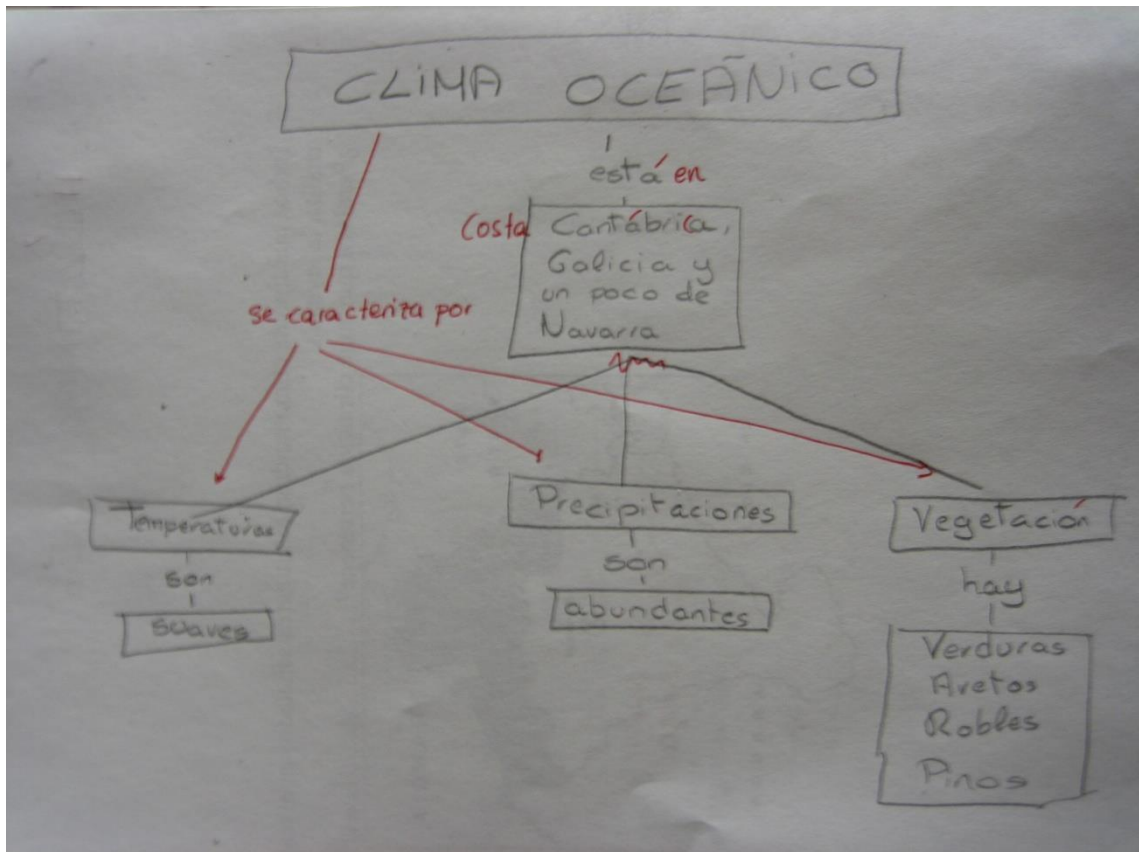 CLIMA OCEÁNICO
está en
Costa Cantábrica,
Galicia y
un poco de
Navarra
se caracteriza por
Temperaturas
son
suaves
Precipitaciones
son
abundantes
Vegetación
hay
Verduras
Avetos
Robles
Pinos